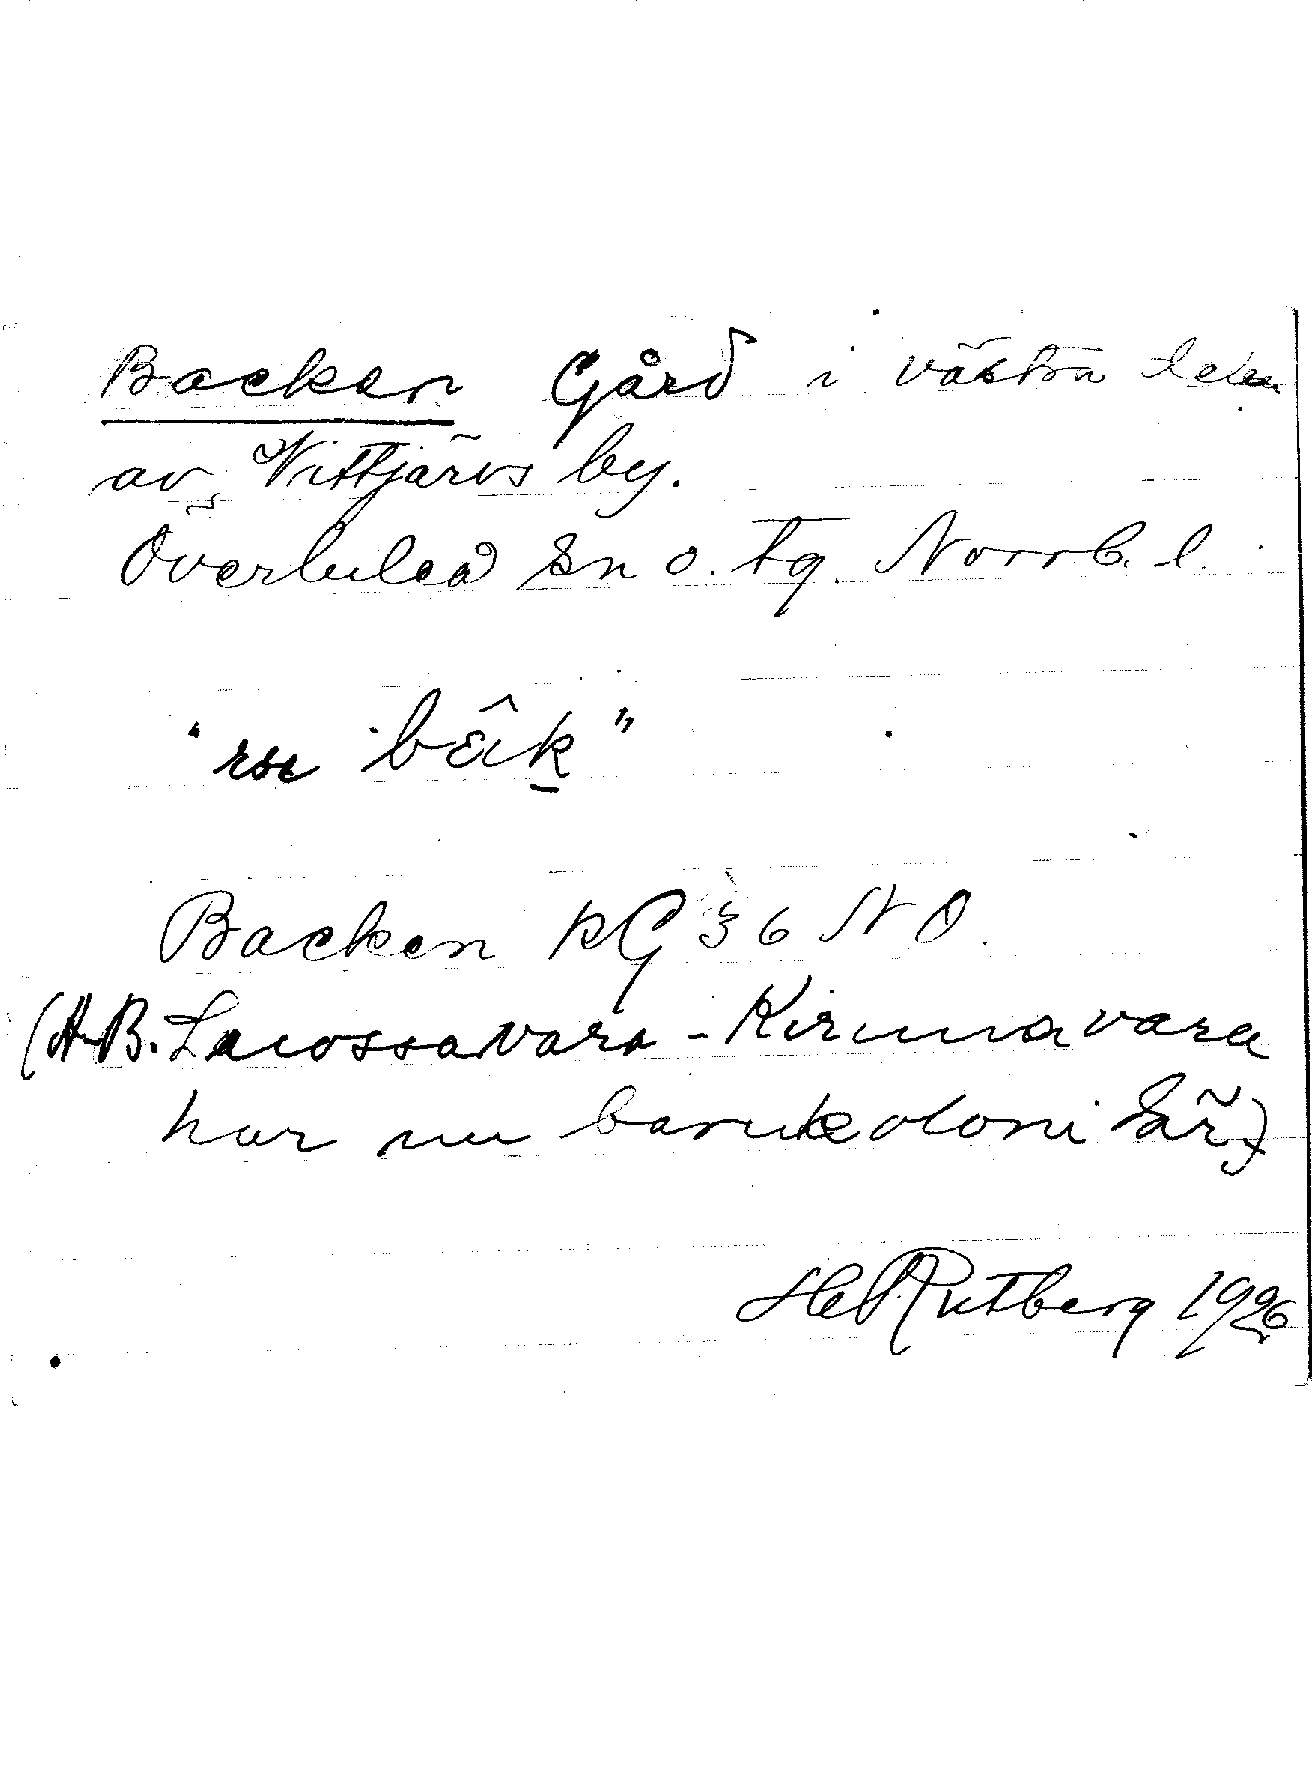 Backen Gård i västra delen
av Vittjärvs by.
Överluleå sn o. tg. Norrb. l.
Backen KG 36 NO.
(A-B. Luossavara-Kirunavara
har nu barnkoloni här)
H Rutberg 1926